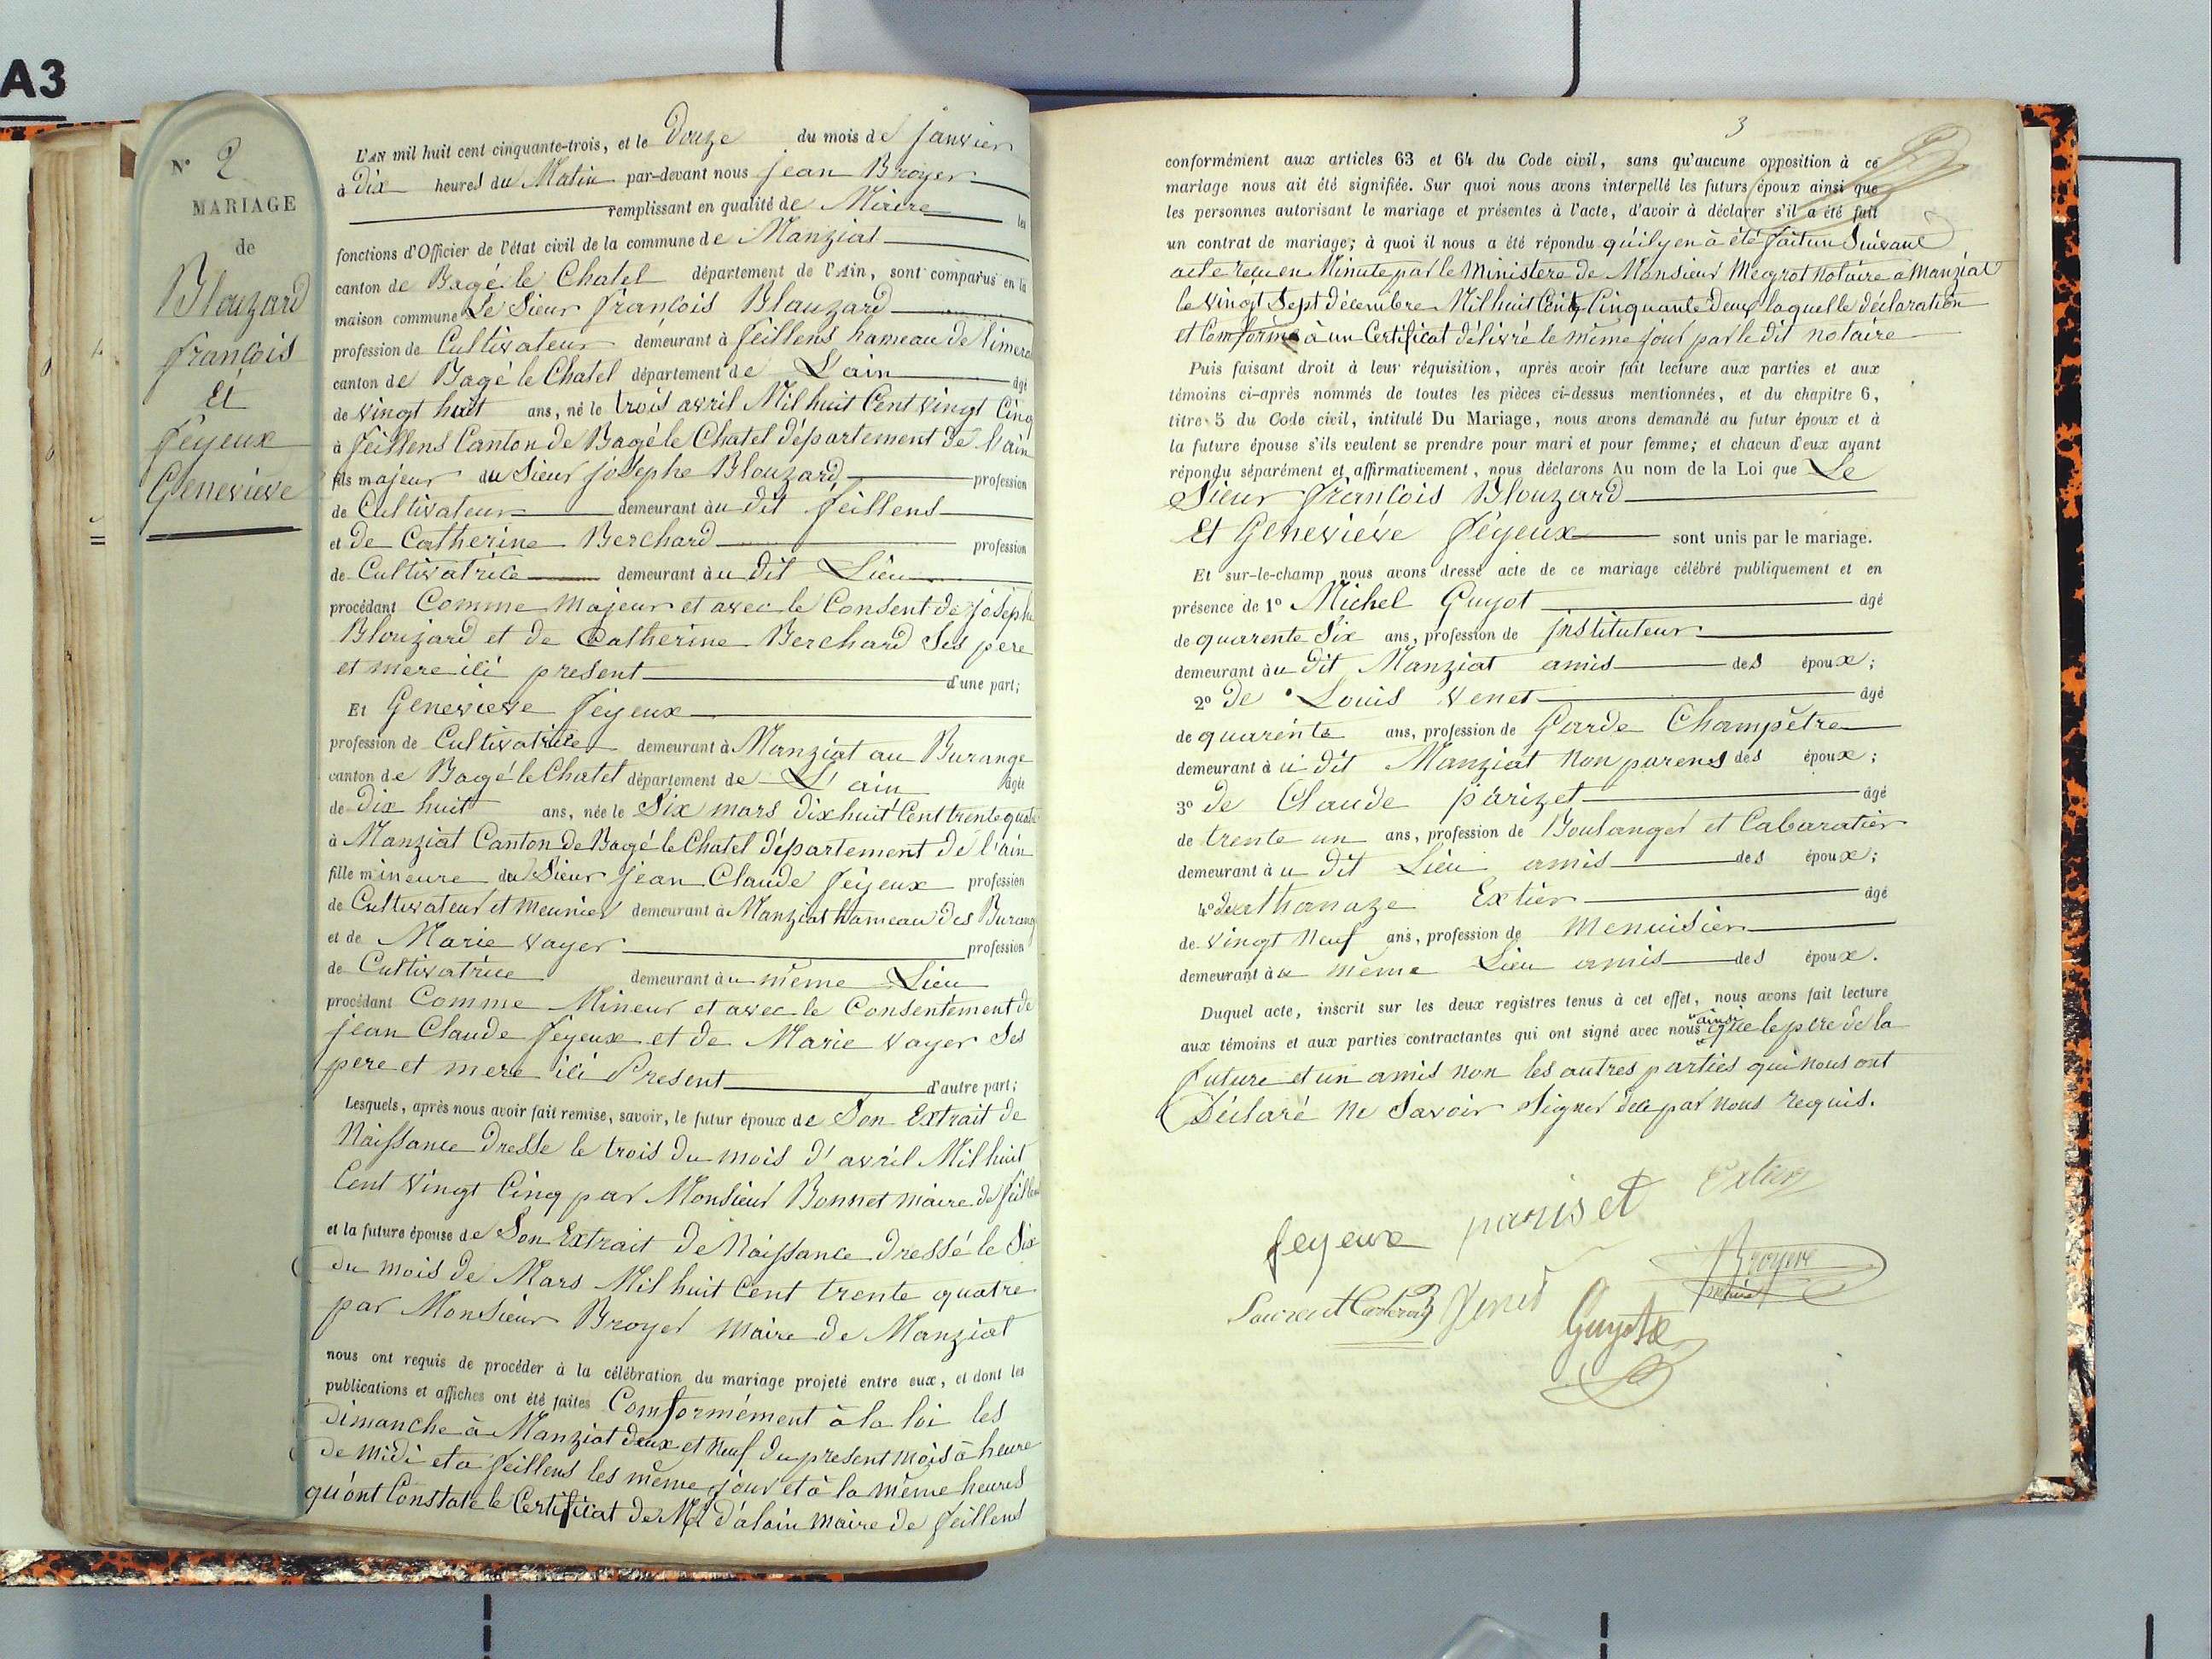 A3
N° 2
MARIAGE
de
Blouzard
françois
Et
féyeux
Genevieve
L'AN mil huit cent cinquante-trois, et le Douze du mois de janvier
à Dix heures du Matin par-devant nous jean Broyer
remplissant en qualité de Maire les
fonctions d'Officier de l'état civil de la commune de Manziat
canton de Bagé le Chatel département de l'Ain, sont comparus en la
maison commune Le Sieur françois Blouzard
profession de Cultivateur demeurant à feillens hameau de limero
canton de Bagé le Chatel département de L'ain âgé
de vingt huit ans, né le trois avril Mil huit Cent vingt Cinq
à feillens Canton de Bagé le Chatel département de l'ain
fils majeur du Sieur josephe Blouzard profession
de Cultivateur demeurant au dit feillens
et De Catherine Berchard profession
de Cultivatrice demeurant au dit Lieu
procédant Comme Majeur et avec le Consent de joseph
Blouzard et de Catherine Berchard Ses pere
et mere ici present d'une part;
Et Genevieve féyeux
profession de Cultivatrice demeurant à Manziat au Burange
canton de Bagé le Chatel département de L'ain âgée
de dix huit ans, née le Six mars dix huit Cent trente quatre
à Manziat Canton de Bagé le Chatel département de l'ain
fille mineure du Sieur jean Claude féyeux profession
de Cultivateur et meunier demeurant à Manziat hameau des Burang
et de Marie vayer profession
de Cultivatrice demeurant au même Lieu
procédant Comme Mineur et avec le Consentement de
jean Claude féyeux et de Marie vayer Ses
pere et mere ici Present d'autre part;
Lesquels, après nous avoir fait remise, savoir, le futur époux de Son Extrait de
Naissance dressé le trois du mois d'avril Mil huit
Cent Vingt Cinq par Monsieur Bonnet maire de feillens
et la future épouse de Son Extrait de Naissance dressé le Six
du mois de Mars Mil huit Cent trente quatre
par Monsieur Broyer Maire de Manziat
nous ont requis de procéder à la célébration du mariage projeté entre eux, et dont les
publications et affiches ont été faites Comformément à la loi les
dimanche à Manziat deux et Neuf du present mois à heure
de midi et a feillens les même jour et à la même heures
qu'ont Constate le Certificat de Mr d'aloin maire de feillens
3
conformément aux articles 63 et 64 du Code civil, sans qu'aucune opposition à ce
mariage nous ait été signifiée. Sur quoi nous avons interpellé les futurs époux ainsi que
les personnes autorisant le mariage et présentes à l'acte, d'avoir à déclarer s'il a été fait
un contrat de mariage; à quoi il nous a été répondu qu'il y en à été fait un Suivant
acte reçu en Minute par le Ministere de Monsieur Megrot Notaire à Manziat
le vingt Sept décembre Mil huit Cent Cinquante Deux laquelle declaration
et Comforme à un Certificat délivré le même jour par le dit notaire
Puis faisant droit à leur réquisition, après avoir fait lecture aux parties et aux
témoins ci-après nommés de toutes les pièces ci-dessus mentionnées, et du chapitre 6,
titre 5 du Code civil, intitulé Du Mariage, nous avons demandé au futur époux et à
la future épouse s'ils veulent se prendre pour mari et pour femme; et chacun d'eux ayant
répondu séparément et affirmativement, nous déclarons Au nom de la Loi que Le
Sieur françois Blouzard
Et Geneviève féyeux sont unis par le mariage.
Et sur-le-champ nous avons dressé acte de ce mariage célébré publiquement et en
présence de 1° Michel Guyot âgé
de quarente Six ans, profession de jnstituteur
demeurant au dit Manziat amis des époux;
2° De Louis Venet âgé
de quarente ans, profession de Garde Champêtre
demeurant à u dit Manziat Non parens des époux;
3° de Claude parizet âgé
de trente un ans, profession de Boulanger et Cabaratier
demeurant à u dit Lieu amis des époux;
4° de athanaze Extier âgé
de vingt Neuf ans, profession de Menuisier
demeurant à u même Lieu amis des époux.
Duquel acte, inscrit sur les deux registres tenus à cet effet, nous avons fait lecture
aux témoins et aux parties contractantes qui ont signé avec nous ainsi que le pere de la
future et un amis Non les autres parties qui nous ont
Déclaré Ne Savoir Signer de ce par Nous requis.
feyeux pariset Extier
Broyer
Laurent Venet Guyot